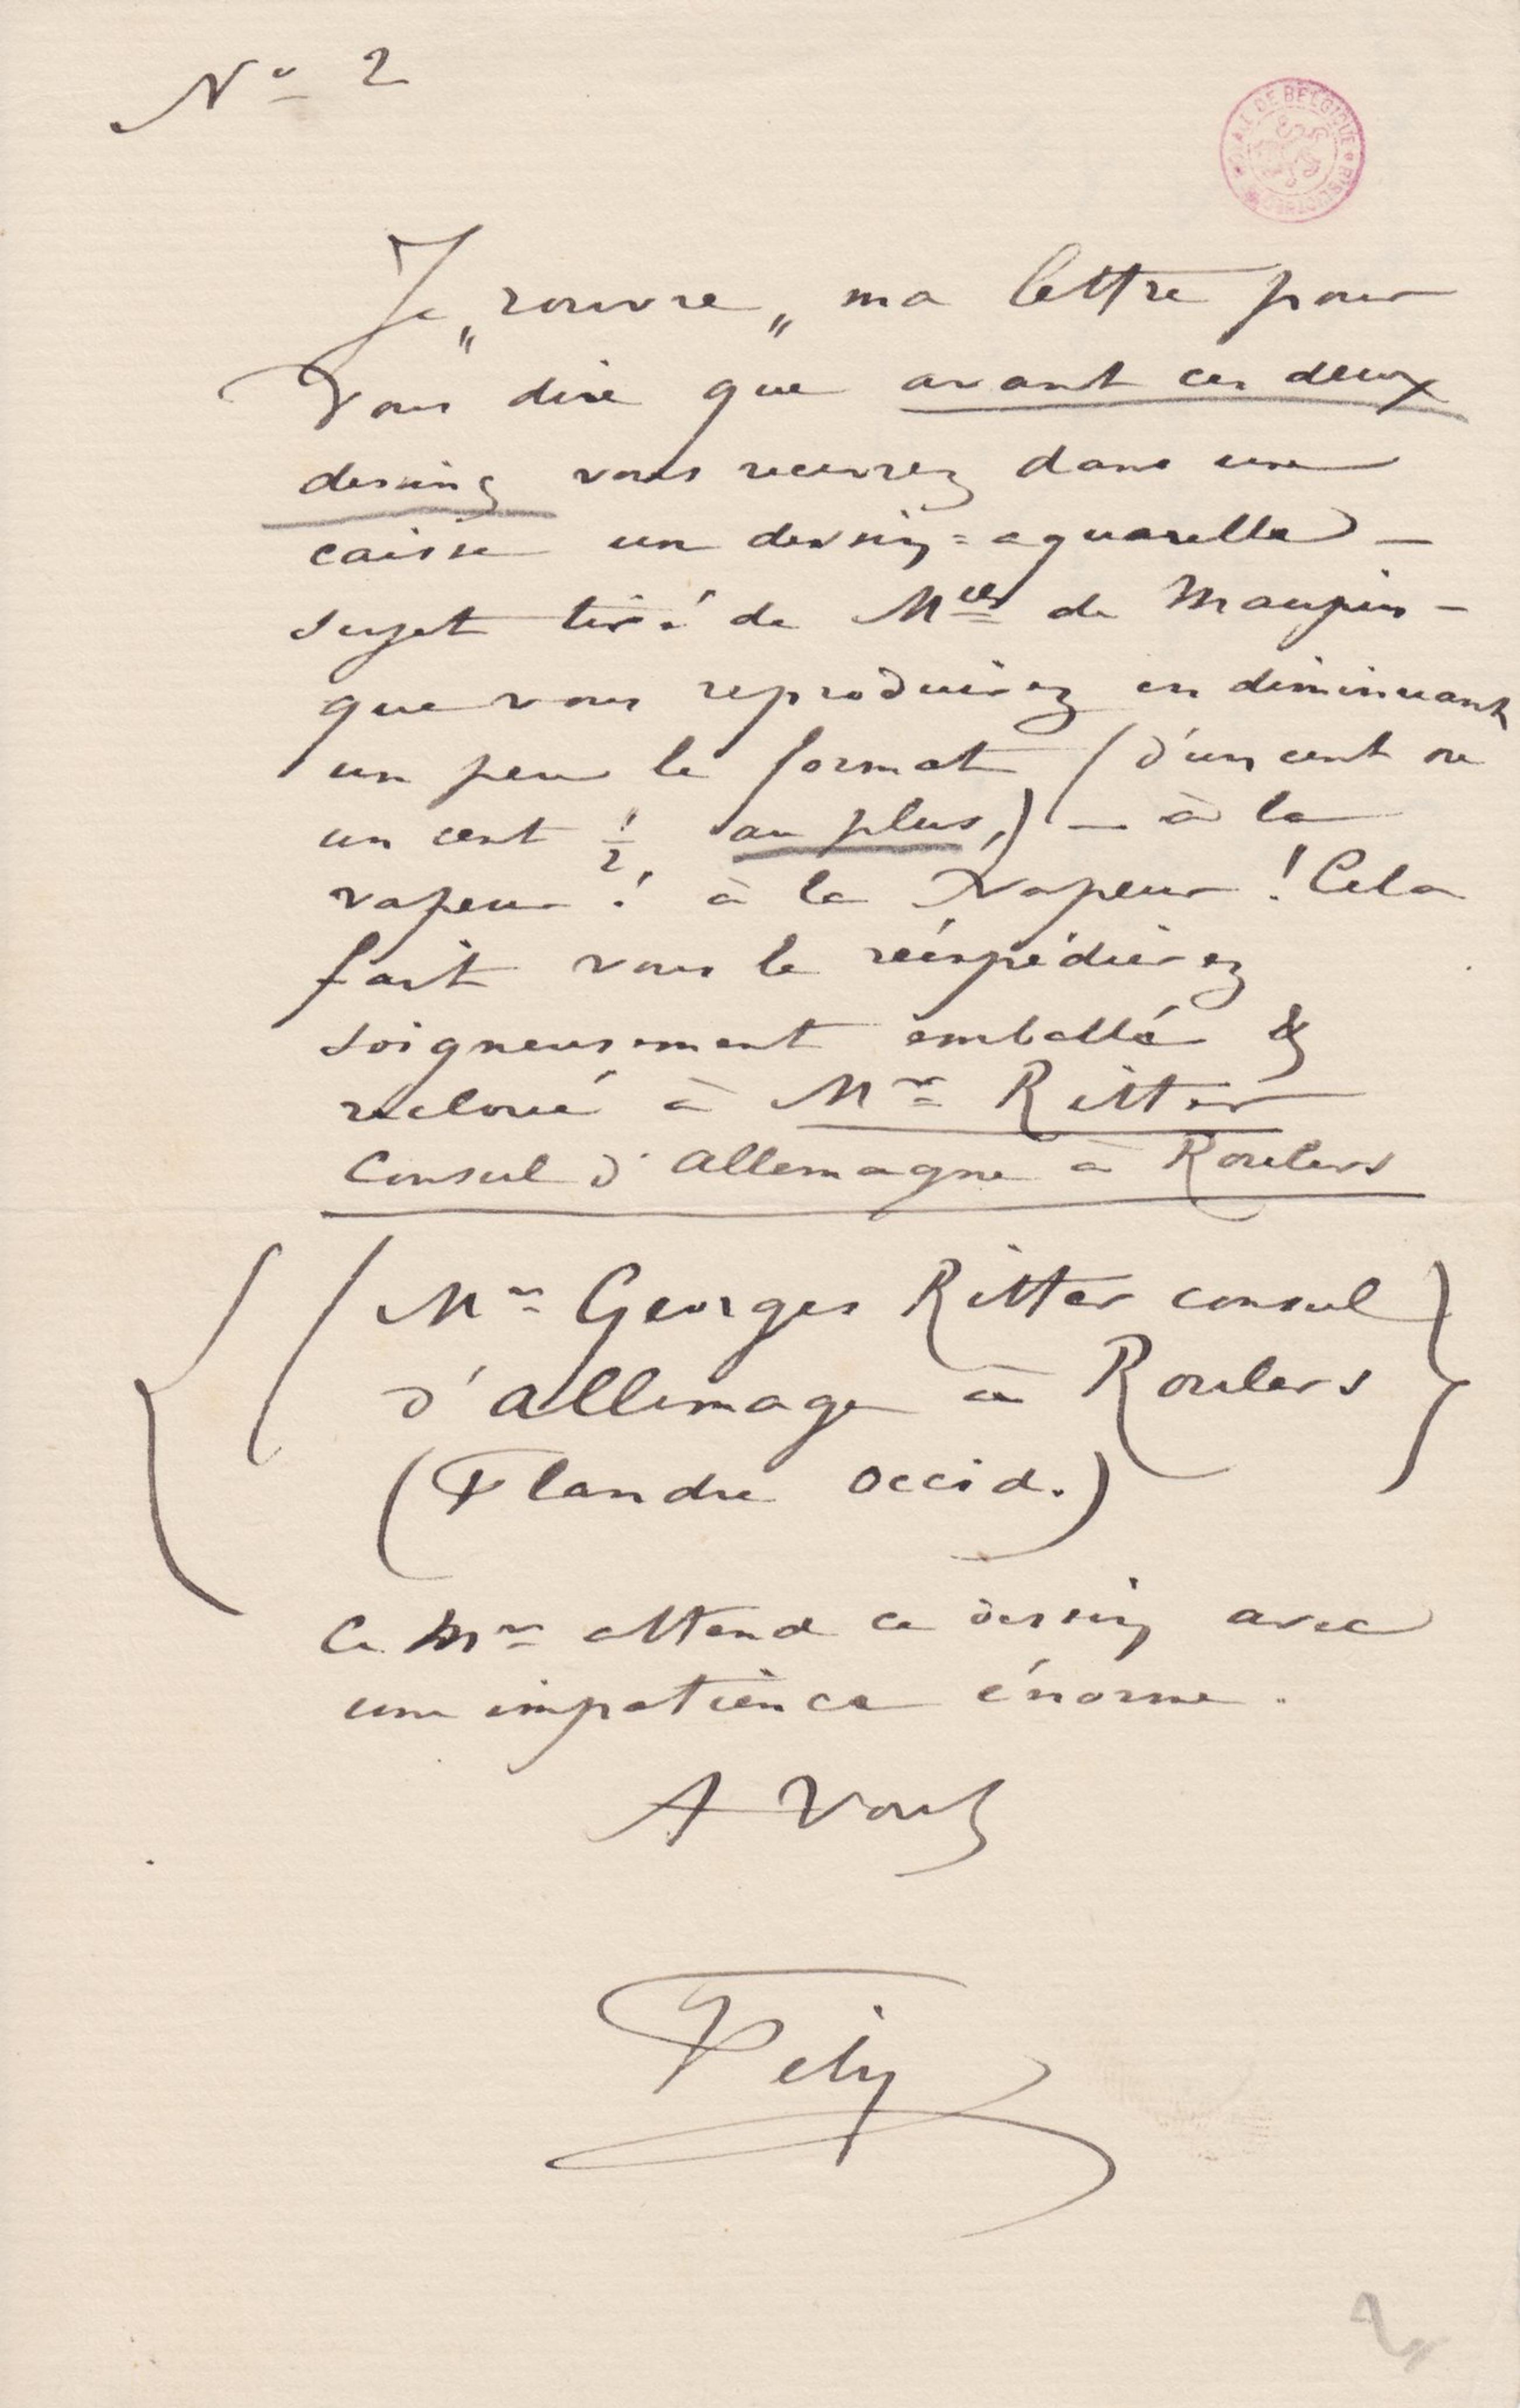 No 2
Je "rouvre" ma lettre pour
Vous dire que avant ces deux
dessins vous recevrez dans une
caisse un dessin=aquarelle —
sujet tiré de Melle de Maupin —
que vous reproduirez en diminuant
un peu le format (d'un cent ou
un cent 1/2 au plus,) — à la
vapeur! à la Vapeur! Cela
fait vous le réexpédierez
soigneusement emballé &
recloué à Mr Ritter
Consul d'Allemagne à Roulers
(Mr Georges Ritter consul
d'Allemagne à Roulers
(Flandre Occid.)
Ce Mr attend ce dessin avec
une impatience énorme.
A Vous
Fély
2